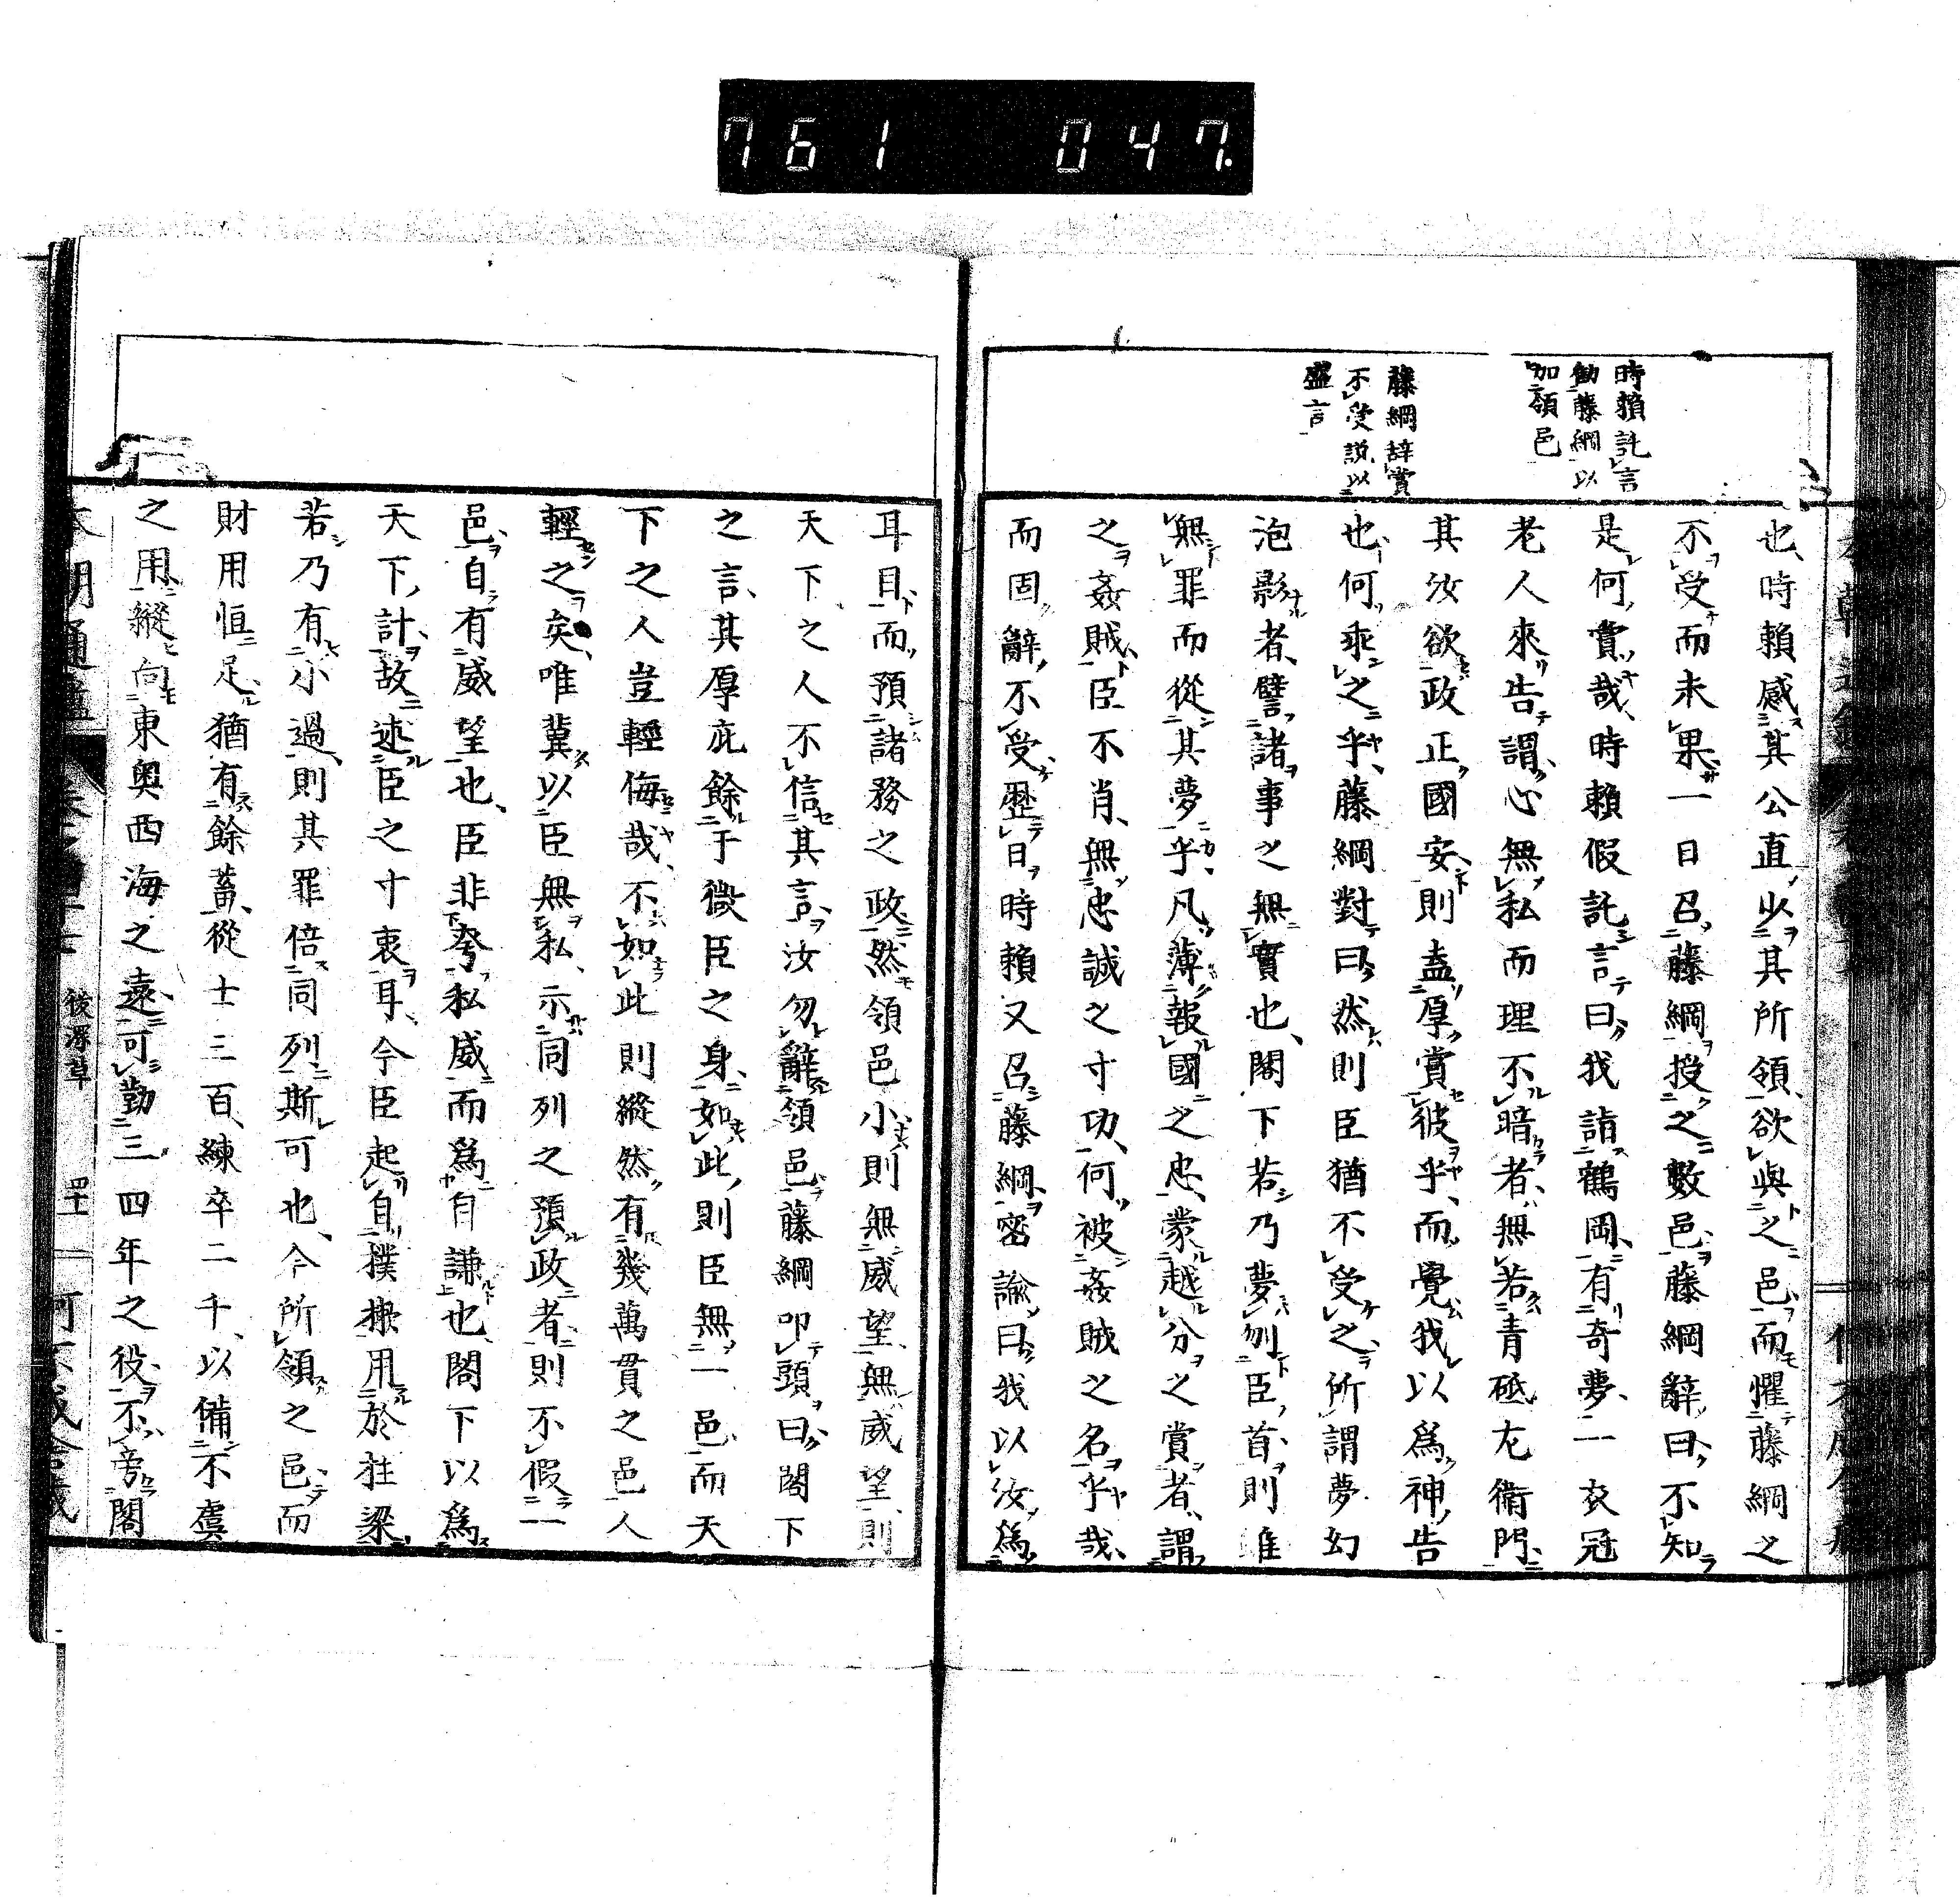 761 047.
時賴託言
勧藤綱以
加領邑
藤綱辞賞
不受説以
盛言
也時賴感其公直以其所領欲與之邑而懼藤綱之
不受而未果一日召藤綱授之數邑藤綱辭曰不知
是何賞哉時賴假託言曰我詣鶴岡有奇夢一衣冠
老人來告謂心無私而理不暗者無若青砥左衛門
其汝欲政正國安則盍厚賞彼乎而覺我以爲神告
也何乖之乎藤綱對曰然則臣猶不受之所謂夢幻
泡影者譬諸事之無實也閣下若乃夢刎臣首則雖
無罪而從其夢乎凡薄報國之忠蒙越分之賞者謂
之姦賊臣不肖無忠誠之寸功何被姦賊之名乎哉
而固辭不受歴日時賴又召藤綱密諭曰我以汝爲
耳目而預諸務之政然領邑小則無威望無威望則
天下之人不信其言汝勿辭領邑藤綱叩頭曰閣下
之言其厚庇餘于微臣之身如此則臣無一邑而天
下之人豈輕侮哉不如此則縱然有幾萬貫之邑人
輕之矣唯冀以臣無私示同列之預政者則不假一
邑自有威望也臣非夸私威而爲自謙也閣下以爲
天下計故述臣之寸衷耳今臣起自撲樕用於柱梁
若乃有小過則其罪倍同列斯可也今所領之邑而
財用恒足猶有餘蓄從士三百練卒二千以備不虞
之用縱向東奥西海之遠可勤三四年之役不旁閣
本朝通鑑
後深草
四十一